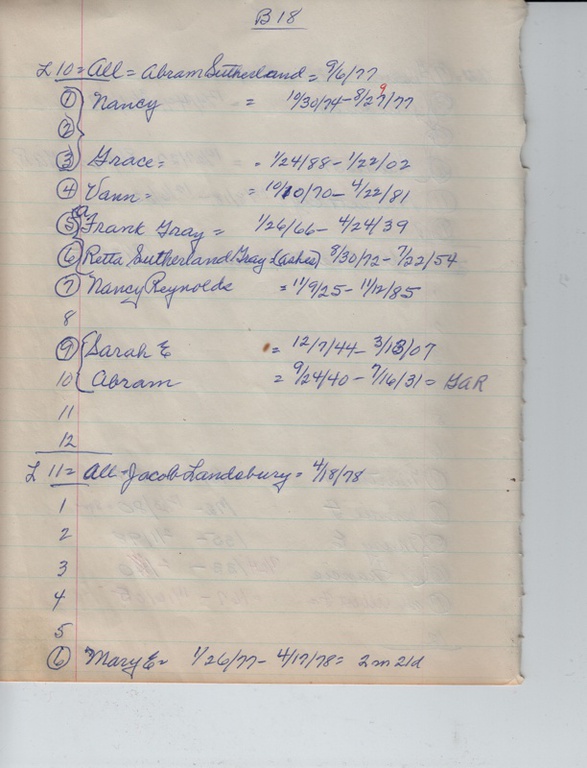 B 18
L 10 = All = Abram Sutherland = 9/6/77
1 Nancy = 10/30/74 - 8/27/77 9
2
3 Grace = = 1/24/88 - 1/22/02
4 Vann = = 10/10/70 - 4/22/81
5 Frank Gray = 1/26/66 - 4/24/39
6 Retta Sutherland Gray (ashes) 8/30/72 - 7/22/54
7 Nancy Reynolds = 11/9/25 - 11/12/85
8
9 Sarah E = 12/7/44 - 3/13/07
10 Abram = 9/24/40 - 7/16/31 = GAR
11
12
L 11 = All - Jacob Landsbury = 4/18/78
1
2
3
4
5
6 Mary E = 1/26/77 - 4/17/78 = 2m 21d